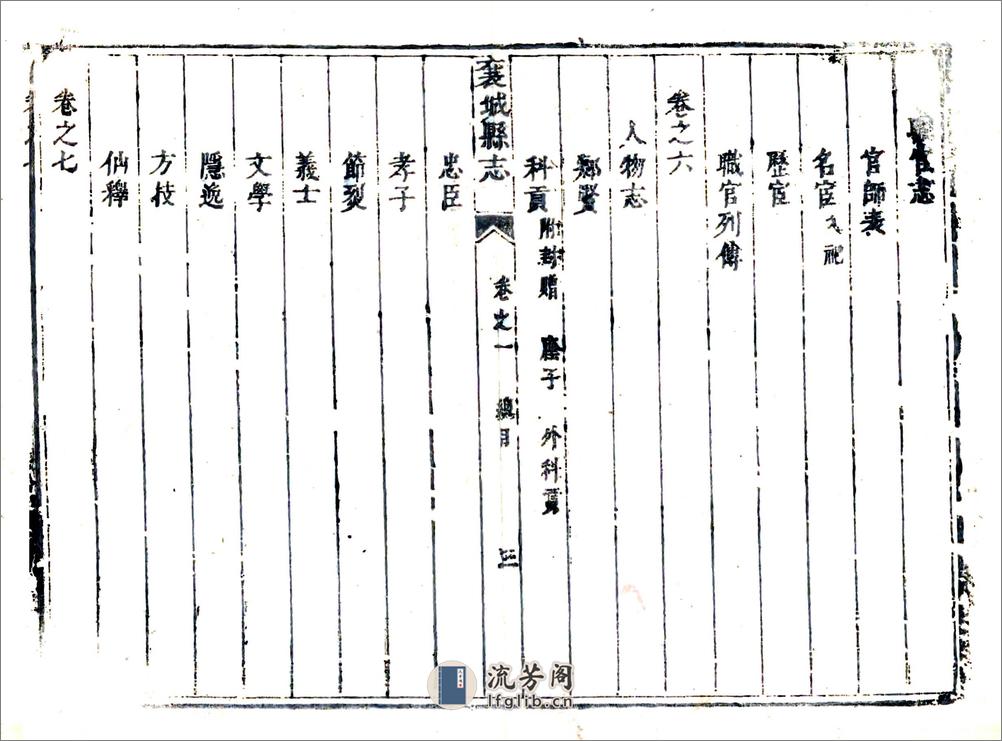 職官志
官師表
名宦入祀
歷宦
職官列傳
卷之六
人物志
鄉賢
科貢附封贈 廕子 外科貢
襄城縣志 卷之一 總目 三
忠臣
孝子
節烈
義士
文學
隱逸
方技
仙釋
卷之七
流芳阁
lfglib.cn